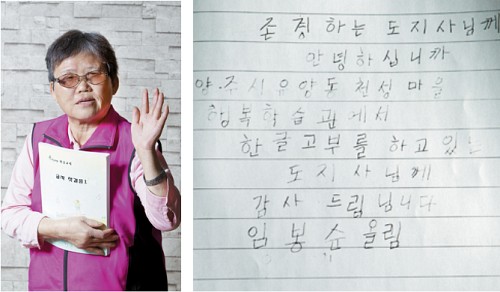 존경하는 도지사님께
안녕하십니까
양.주시유양동천성마을
행복학습관에서
한글고부를 하고있는
도지사님께
감사 드림니다
임봉순 올림